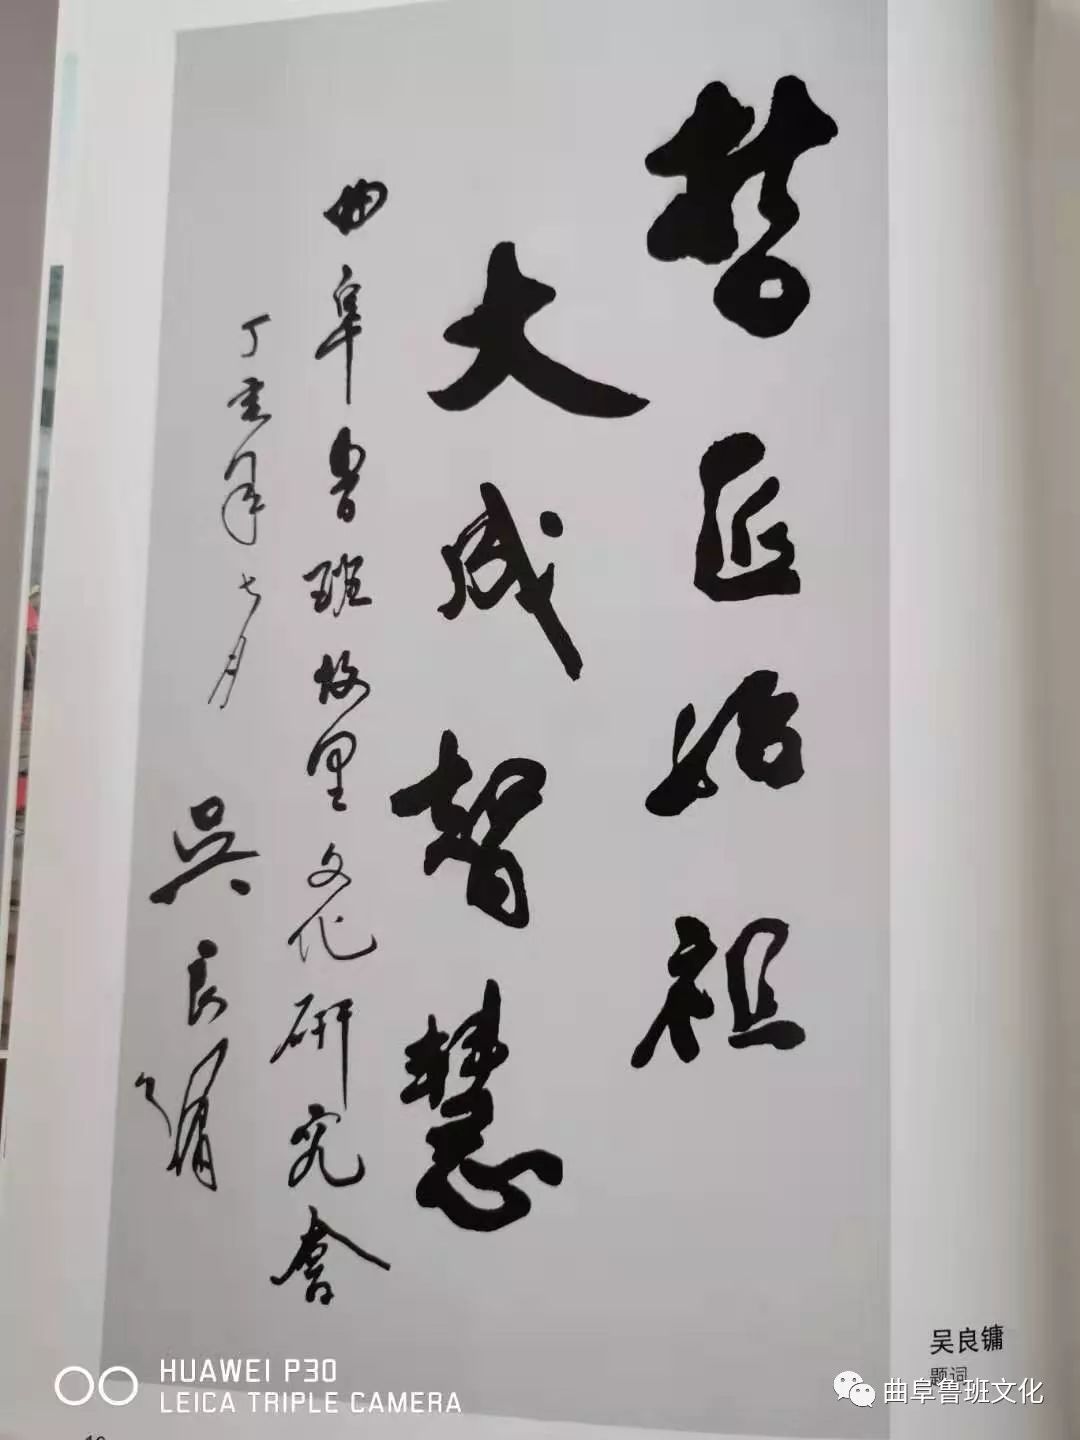 哲匠始祖
大成智慧
曲阜鲁班故里文化研究會
丁亥年七月
吳良镛
吴良镛
题词
HUAWEI P30
LEICA TRIPLE CAMERA
曲阜鲁班文化